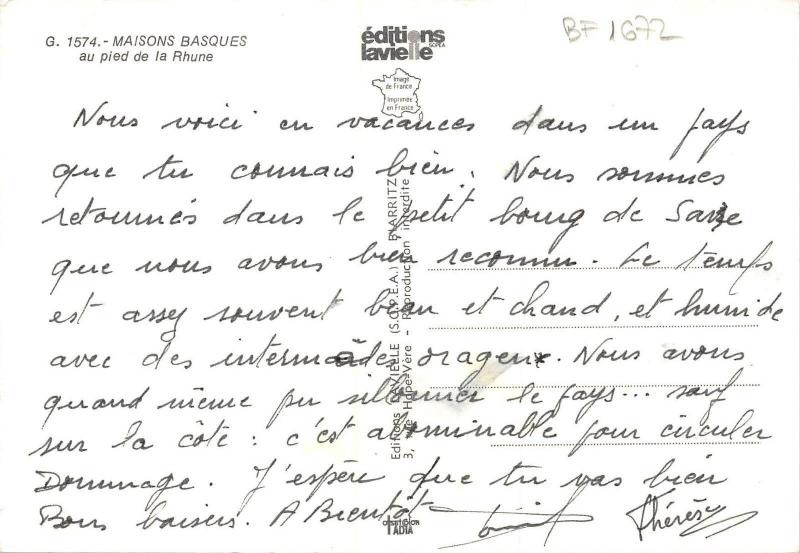 G. 1574.- MAISONS BASQUES
au pied de la Rhune
éditions
lavielle
SOPEA
BF 1672
Image
de France
Imprimée
en France
Nous voici en vacances dans un pays
que tu connais bien. Nous sommes
retournés dans le petit bourg de Sare
que nous avons bien reconnu. Le temps
est assez souvent beau et chaud, et humide
avec des intermèdes orageux. Nous avons
quand même pu sillonner le pays... sauf
sur la côte : c'est abominable pour circuler
Dommage. J'espère que tu vas bien
Bons baisers. A Bientôt
Thérèse
Editions LAVIELLE (S.O.P.E.A.) BIARRITZ
Reproduction interdite